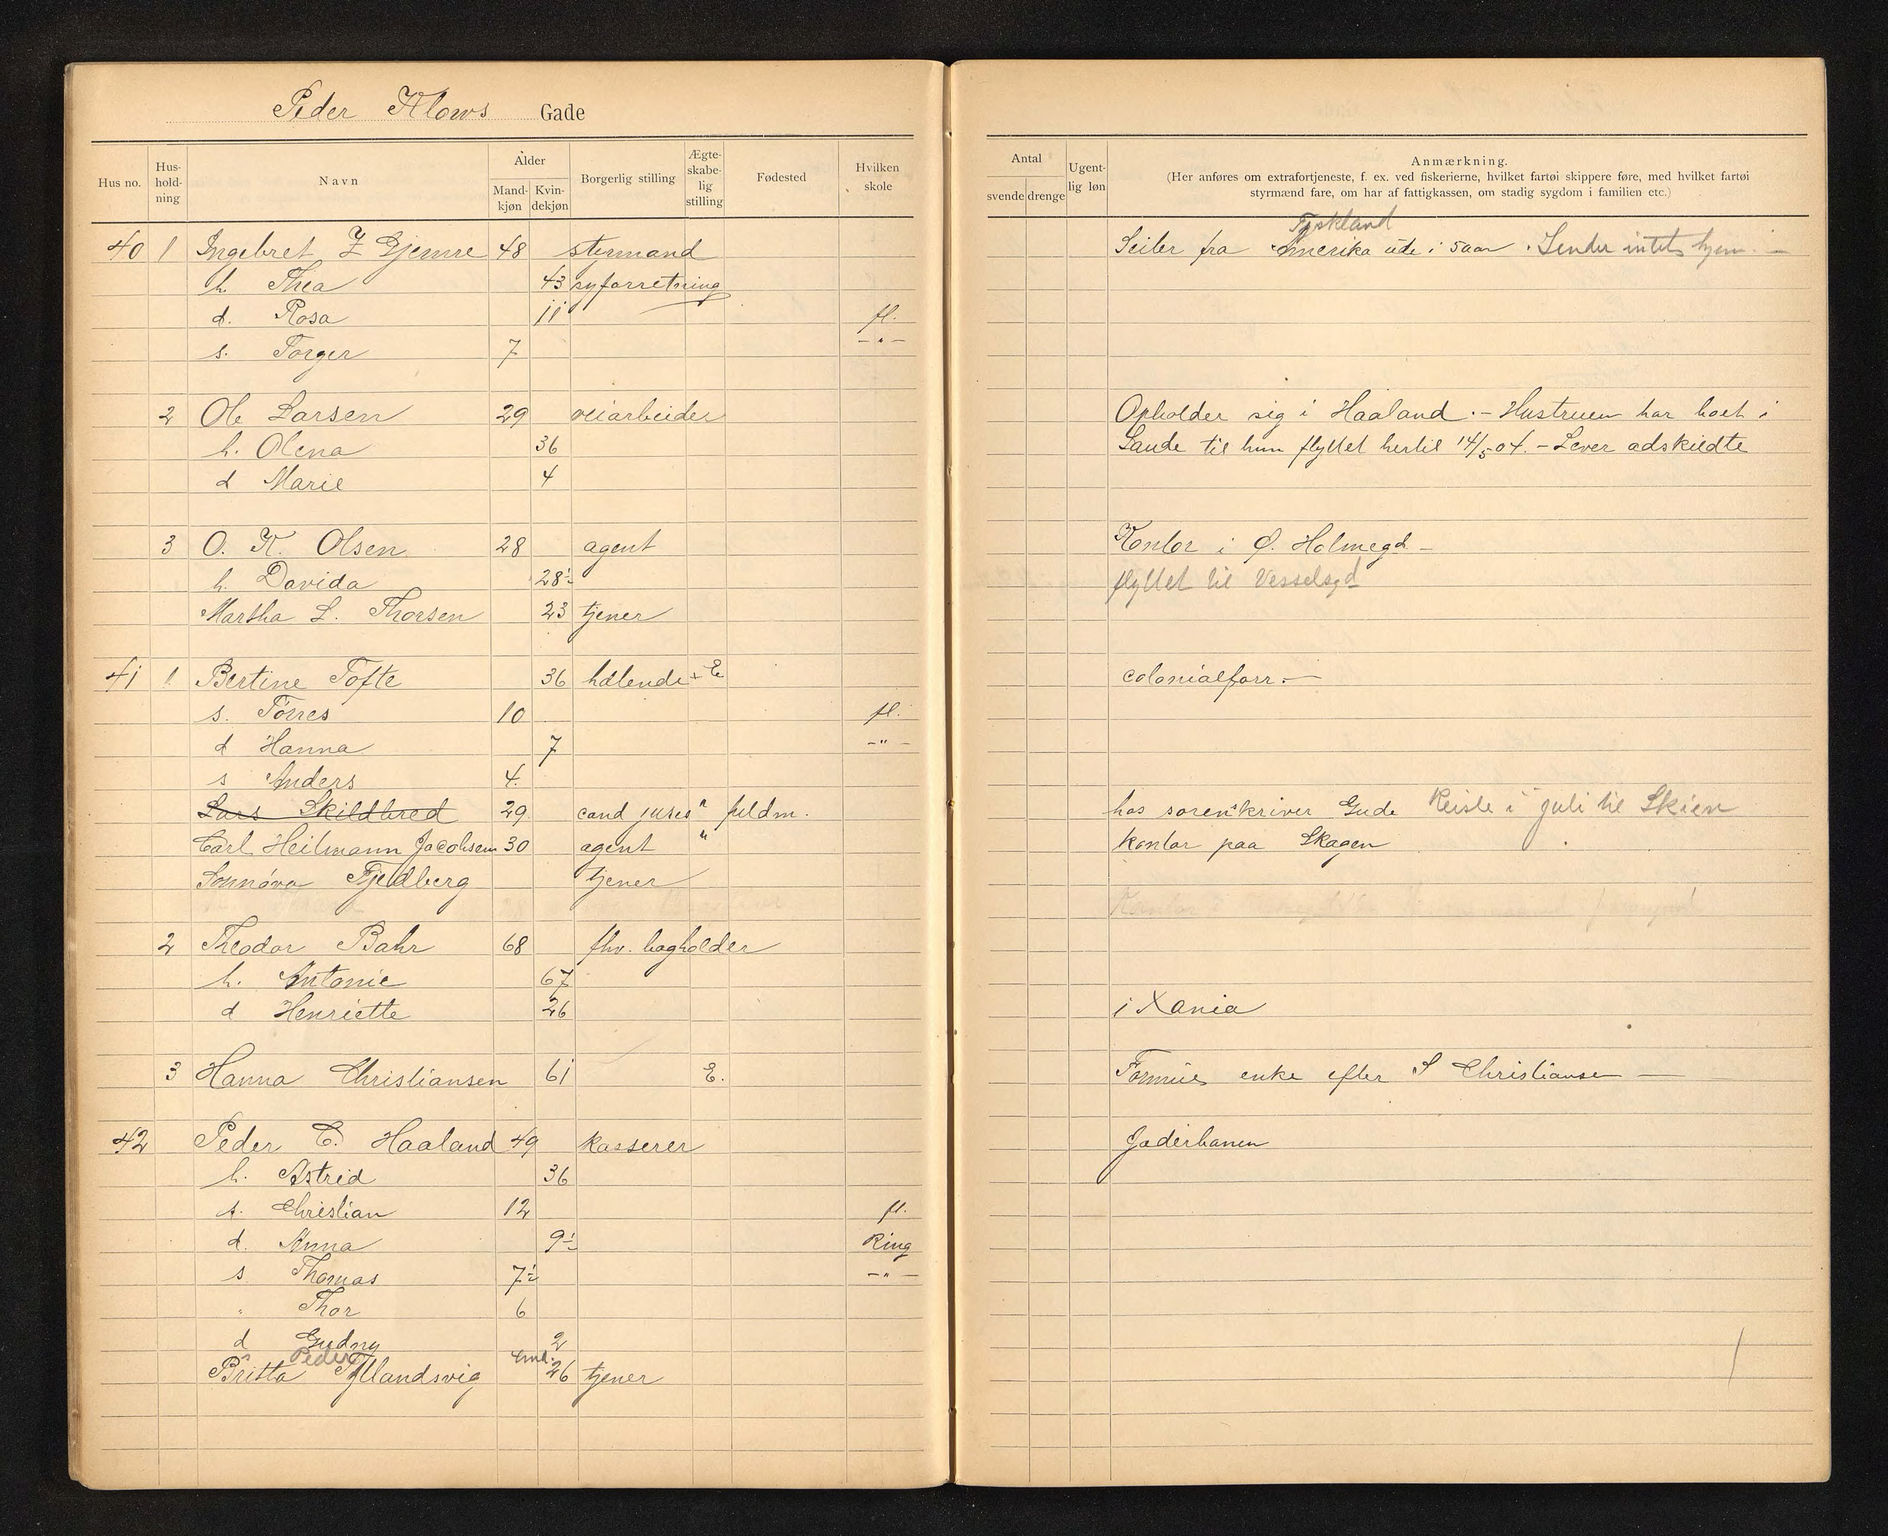 Peder Klows Gade
Hus no. Hus-hold-ning Navn Alder Mand-kjøn Kvin-dekjøn Borgerlig stilling Ægte-skabe-lig stilling Fødested Hvilken skole
Antal svende drenge Ugent-lig løn Anmærkning.
(Her anføres om extrafortjeneste, f. ex. ved fiskerierne, hvilket fartøi skippere føre, med hvilket fartøi
styrmænd fare, om har af fattigkassen, om stadig sygdom i familien etc.)
Tyskland
40 1 Ingebret Z Gjemre 48 stermand Seiler fra Amerika ude i 5 aar. Sender intet hjem. —
h. Thea 43 syforretning
d. Rosa 11 fl.
s. Torger 7 — " —
2 Ole Larsen 29 veiarbeider Opholder sig i Haaland. — Hustruen har boet i
h. Olena 36 Sande til hun flyttet hertil 14/5 04. — Lever adskildte
d Marie 4
3 O. K. Olsen 28 agent Kontor i Ø. Holmegd —
h. Davida 28½ flyttet til Vesselsgd
Martha L. Thorsen 23 tjener
41 1. Bertine Tofte 36 hdlende E colonialforr. —
s. Torres 10 fl.
d Hanna 7 — " —
s Anders 4.
Lars Skildbred 29 cand juris " fuldm. hos sorenskriver Gude Reiste i juli til Skien
Carl Heilmann Jacobsen 30 agent " kontor paa Skagen
Sønnøva Fjeldberg tjener
2 Theodor Bahr 68 fhv. bogholder
h. Antonie 67
d Henriette 26 i Xania
3 Hanna Christiansen 61 E. Formue enke efter S Christiansen —
42 Peder C. Haaland 49 kasserer Jæderbanen
h. Astrid 36
s. Christian 12 fl.
d. Anna 9½ Ring
s Thomas 7½ — " —
" Thor 6
d Gudny 2
s Peder
Britta Tyllandsvig 26 tjener